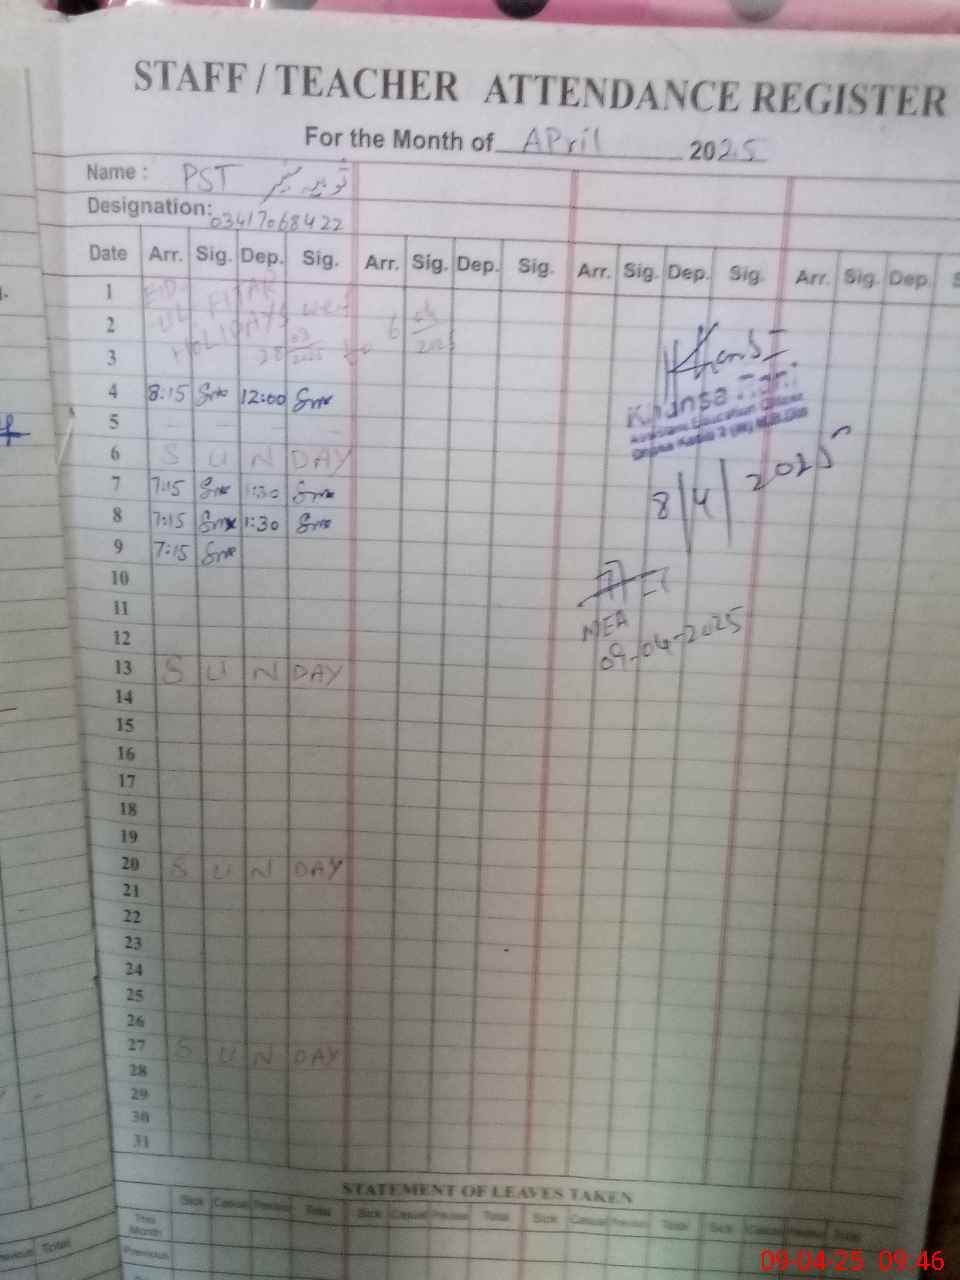 STAFF / TEACHER ATTENDANCE REGISTER
For the Month of APril 2025
Name : PST
Designation: 03417068422
Date Arr. Sig. Dep. Sig. Arr. Sig. Dep. Sig. Arr. Sig. Dep. Sig. Arr. Sig. Dep
1 EID-
UL FITAR
2 HOLIDAYS
3
4 8:15 12:00
5
6 SUNDAY
7 7:15 1:30
8 7:15 1:30
9 7:15
10
11
12
13 SUNDAY
14
15
16
17
18
19
20 SUNDAY
21
22
23
24
25
26
27 SUNDAY
28
29
30
31
Khansa
8/4/2025
MEA
09-04-2025
STATEMENT OF LEAVES TAKEN
Sick Casual Total Sick Casual Total Sick Casual Total Sick Casual Total
This
Month
Previous
Total
09-04-25 09:46